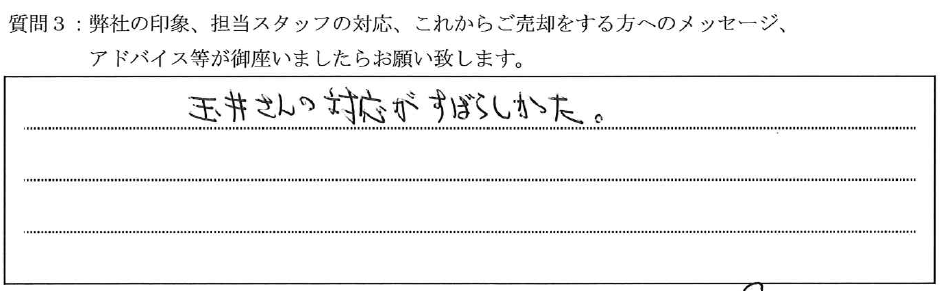 質問３：弊社の印象、担当スタッフの対応、これからご売却をする方へのメッセージ、
アドバイス等が御座いましたらお願い致します。
玉井さんの対応がすばらしかった。